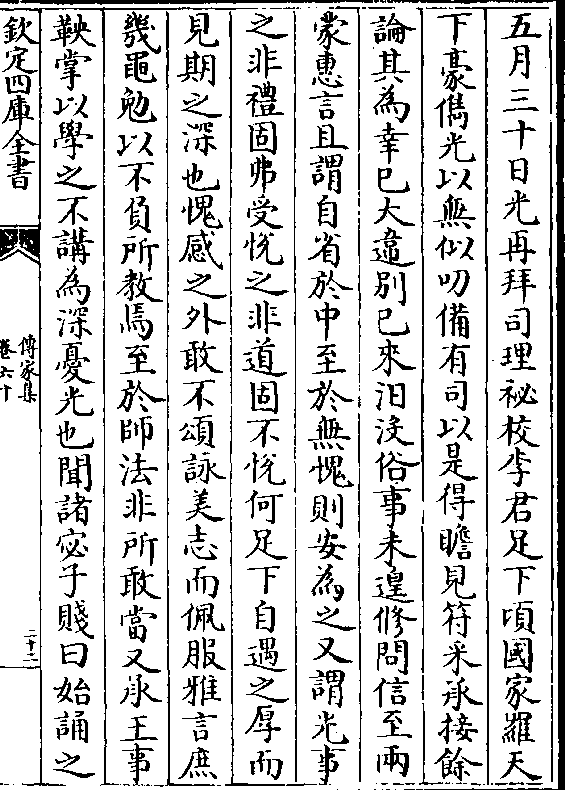 五月三十日光再拜司理祕校李君足下頃國家羅天
下豪儁光以無似叨備有司以是得瞻見符采承接餘
論其為幸已大違別已來汨没俗事未遑修問信至兩
蒙惠言且謂自省於中至於無愧則安為之又謂光事
之非禮固弗受悅之非道固不悅何足下自遇之厚而
見期之深也愧感之外敢不頌詠美志而佩服雅言庶
幾黽勉以不負所教焉至於師法非所敢當又承王事
鞅掌以學之不講為深憂光也聞諸宓子賤曰始誦之
欽定四庫全書
傳家集
卷六十
二十二